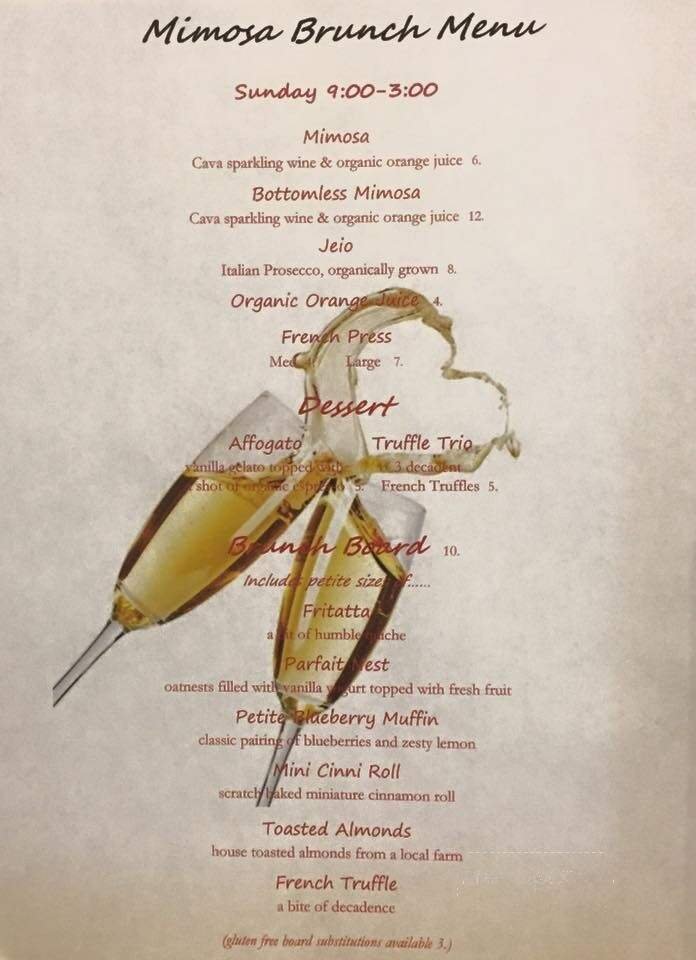 Mimosa Brunch Menu
Sunday 9:00-3:00
Mimosa
Cava sparkling wine & organic orange juice 6.
Bottomless Mimosa
Cava sparkling wine & organic orange juice 12.
Jeio
Italian Prosecco, organically grown 8.
Organic Orange Juice 4.
French Press
Med Large 7.
Dessert
Affogato Truffle Trio
vanilla gelato topped with 3 decadent
shot of organic espresso 5. French Truffles 5.
Brunch Board 10.
Includes petite sizes of......
Fritatta
a bit of humble quiche
Parfait Nest
oatnests filled with vanilla yogurt topped with fresh fruit
Petite Blueberry Muffin
classic pairing of blueberries and zesty lemon
Mini Cinni Roll
scratch baked miniature cinnamon roll
Toasted Almonds
house toasted almonds from a local farm
French Truffle
a bite of decadence
(gluten free board substitutions available 3.)